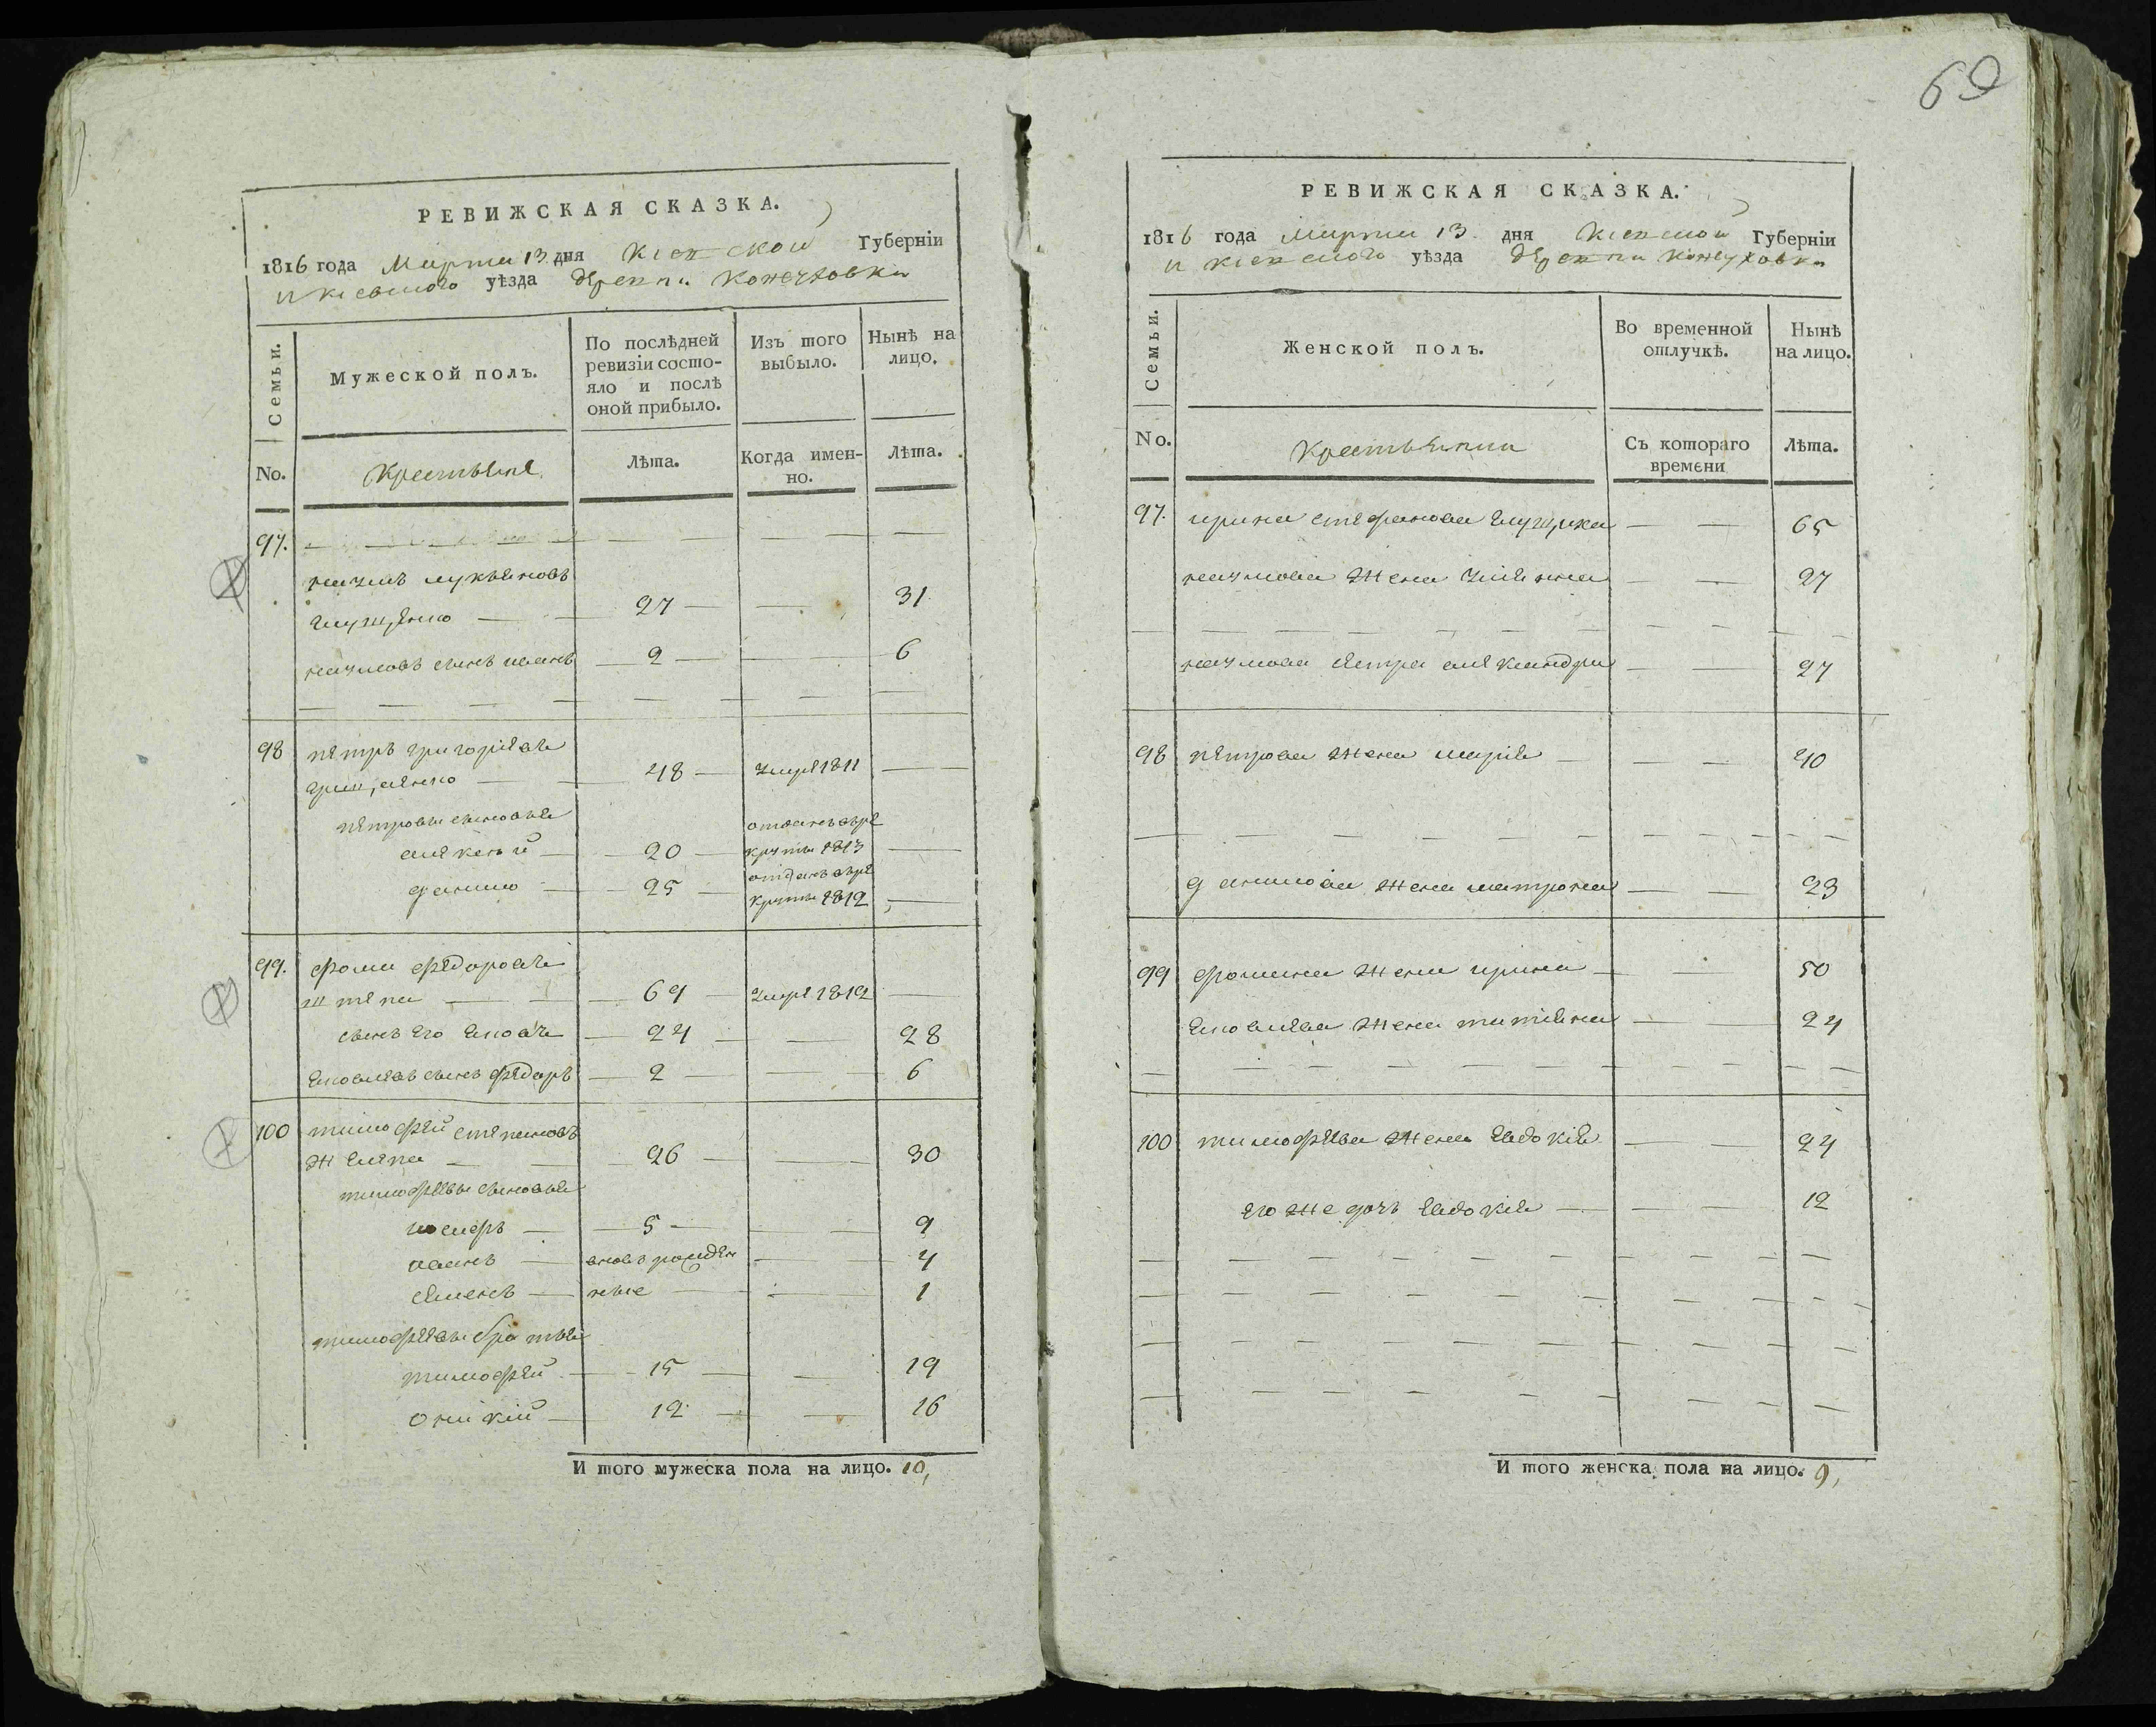 69
РЕВИЖСКАЯ СКАЗКА.
1816 года Марта 13 дня Кіевской Губерніи
и кіевского уѣзда деревни Кожуховки
Семьи.
Мужеской полъ.
По послѣдней
ревизіи состо-
яло и послѣ
оной прибыло.
Изъ того
выбыло.
Нынѣ на
лицо.
No.
Крестьяне
Лѣта.
Когда имен-
но.
Лѣта.
97.
наумъ лукьяновъ
27 31
наумовъ сынъ иванъ 2 6
98 петръ григоріевъ
48 умре 1811
петровы сыновья
алексѣй 20 отданъ въ ре
круты 1813
данило 25 отданъ в ре
круты 1812
99. фома федоровъ
штепа 69 умре 1812
сынъ его яковъ 24 28
яковлевъ сынъ федоръ 2 6
100 тимофей степановъ
26 30
тимофеевы сыновья
5 9
иванъ вновь рожден 4
семенъ ные 1
тимофеевы братья
тимофей 15 19
12 16
И того мужеска пола на лицо. 10,
РЕВИЖСКАЯ СКАЗКА.
1816 года Марта 13 дня Кіевской Губерніи
и кіевского уѣзда деревни Кожуховки
Семьи.
Женской полъ.
Во временной
отлучкѣ.
Нынѣ
на лицо.
No.
Крестьянки
Съ котораго
времени
Лѣта.
97. ирина стефанова 65
наумова жена улияна 27
наумова сестра александра 27
98 петрова жена марія 40
данилова жена матрона 23
99 фомина жена ирина 50
яковлева жена татіяна 24
100 тимофеева жена евдокія 24
его же дочь евдокія 12
И того женска пола на лицо. 9,